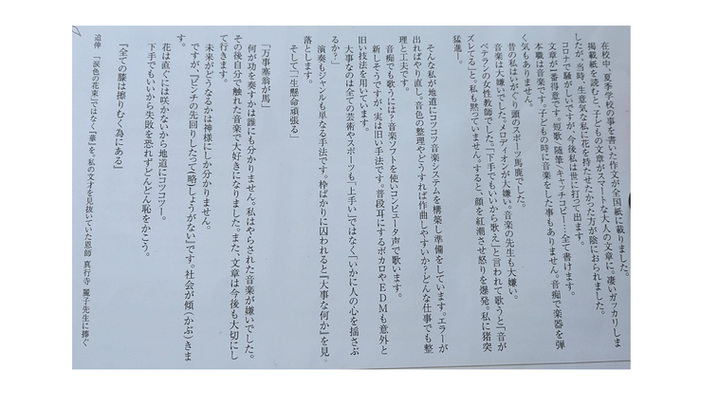 在校中、夏季学校の事を書いた作文が全国紙に載りました。
掲載紙を読むと、子どもの文章がスマートな大人の文章に。凄いガッカリしま
したが、当時、生意気な私に花を持たせたかった方が陰におられました。
コロナで騒がしいですが、今後私は世に打って出ます。
文章が一番得意です。短歌、随筆、キャッチコピー…全て書けます。
本職は音楽です。子どもの時に音楽をした事もありません。音痴で楽器を弾
く気もありません。
昔の私はいがぐり頭のスポーツ馬鹿でした。
音楽は大嫌いでした。メロディオンが大嫌い。音楽の先生も大嫌い。
ベテランの女性教師でした。「下手でもいいから歌え」と言われて歌うと「音が
ズレてる」と。私も黙っていません。すると、顔を紅潮させ怒りを爆発。私に猪突
猛進。
そんな私が地道にコツコツ音楽システムを構築し準備をしています。エラーが
出ればやり直し。音色の整理やどうすれば作曲しやすいか?どんな仕事でも整
理と工夫です。
音痴でも歌うには?音楽ソフトを使いコンピュータ声で歌います。
新しそうですが、実は旧い手法です。普段耳にするボカロやEDMも意外と
旧い技法を用いています。
大事なのは全ての芸術やスポーツも「上手い」ではなく「いかに人の心を揺さぶ
るか?」
演奏もジャンルも単なる手法です。枠ばかりに囚われると『大事な何か』を見
落とします。
そして「一生懸命頑張る」
「万事塞翁が馬」
何が功を奏すかは誰にも分かりません。私はやらされた音楽が嫌いでした。
その後自分で触れた音楽で大好きになりました。また、文章は今後も大切にし
て行きます。
未来がどうなるかは神様にしか分かりません。
ですが、「ピンチの先回りしたって(略)しょうがない」です。社会が傾(かぶ)きま
す。
花は直ぐには咲かないから地道にコツコツー。
下手でもいいから失敗を恐れずどんどん恥をかこう。
『全ての膝は擦りむく為にある』
追伸 「涙色の花束」ではなく『華』を。私の文才を見抜いていた恩師 真行寺 麗子先生に捧ぐ